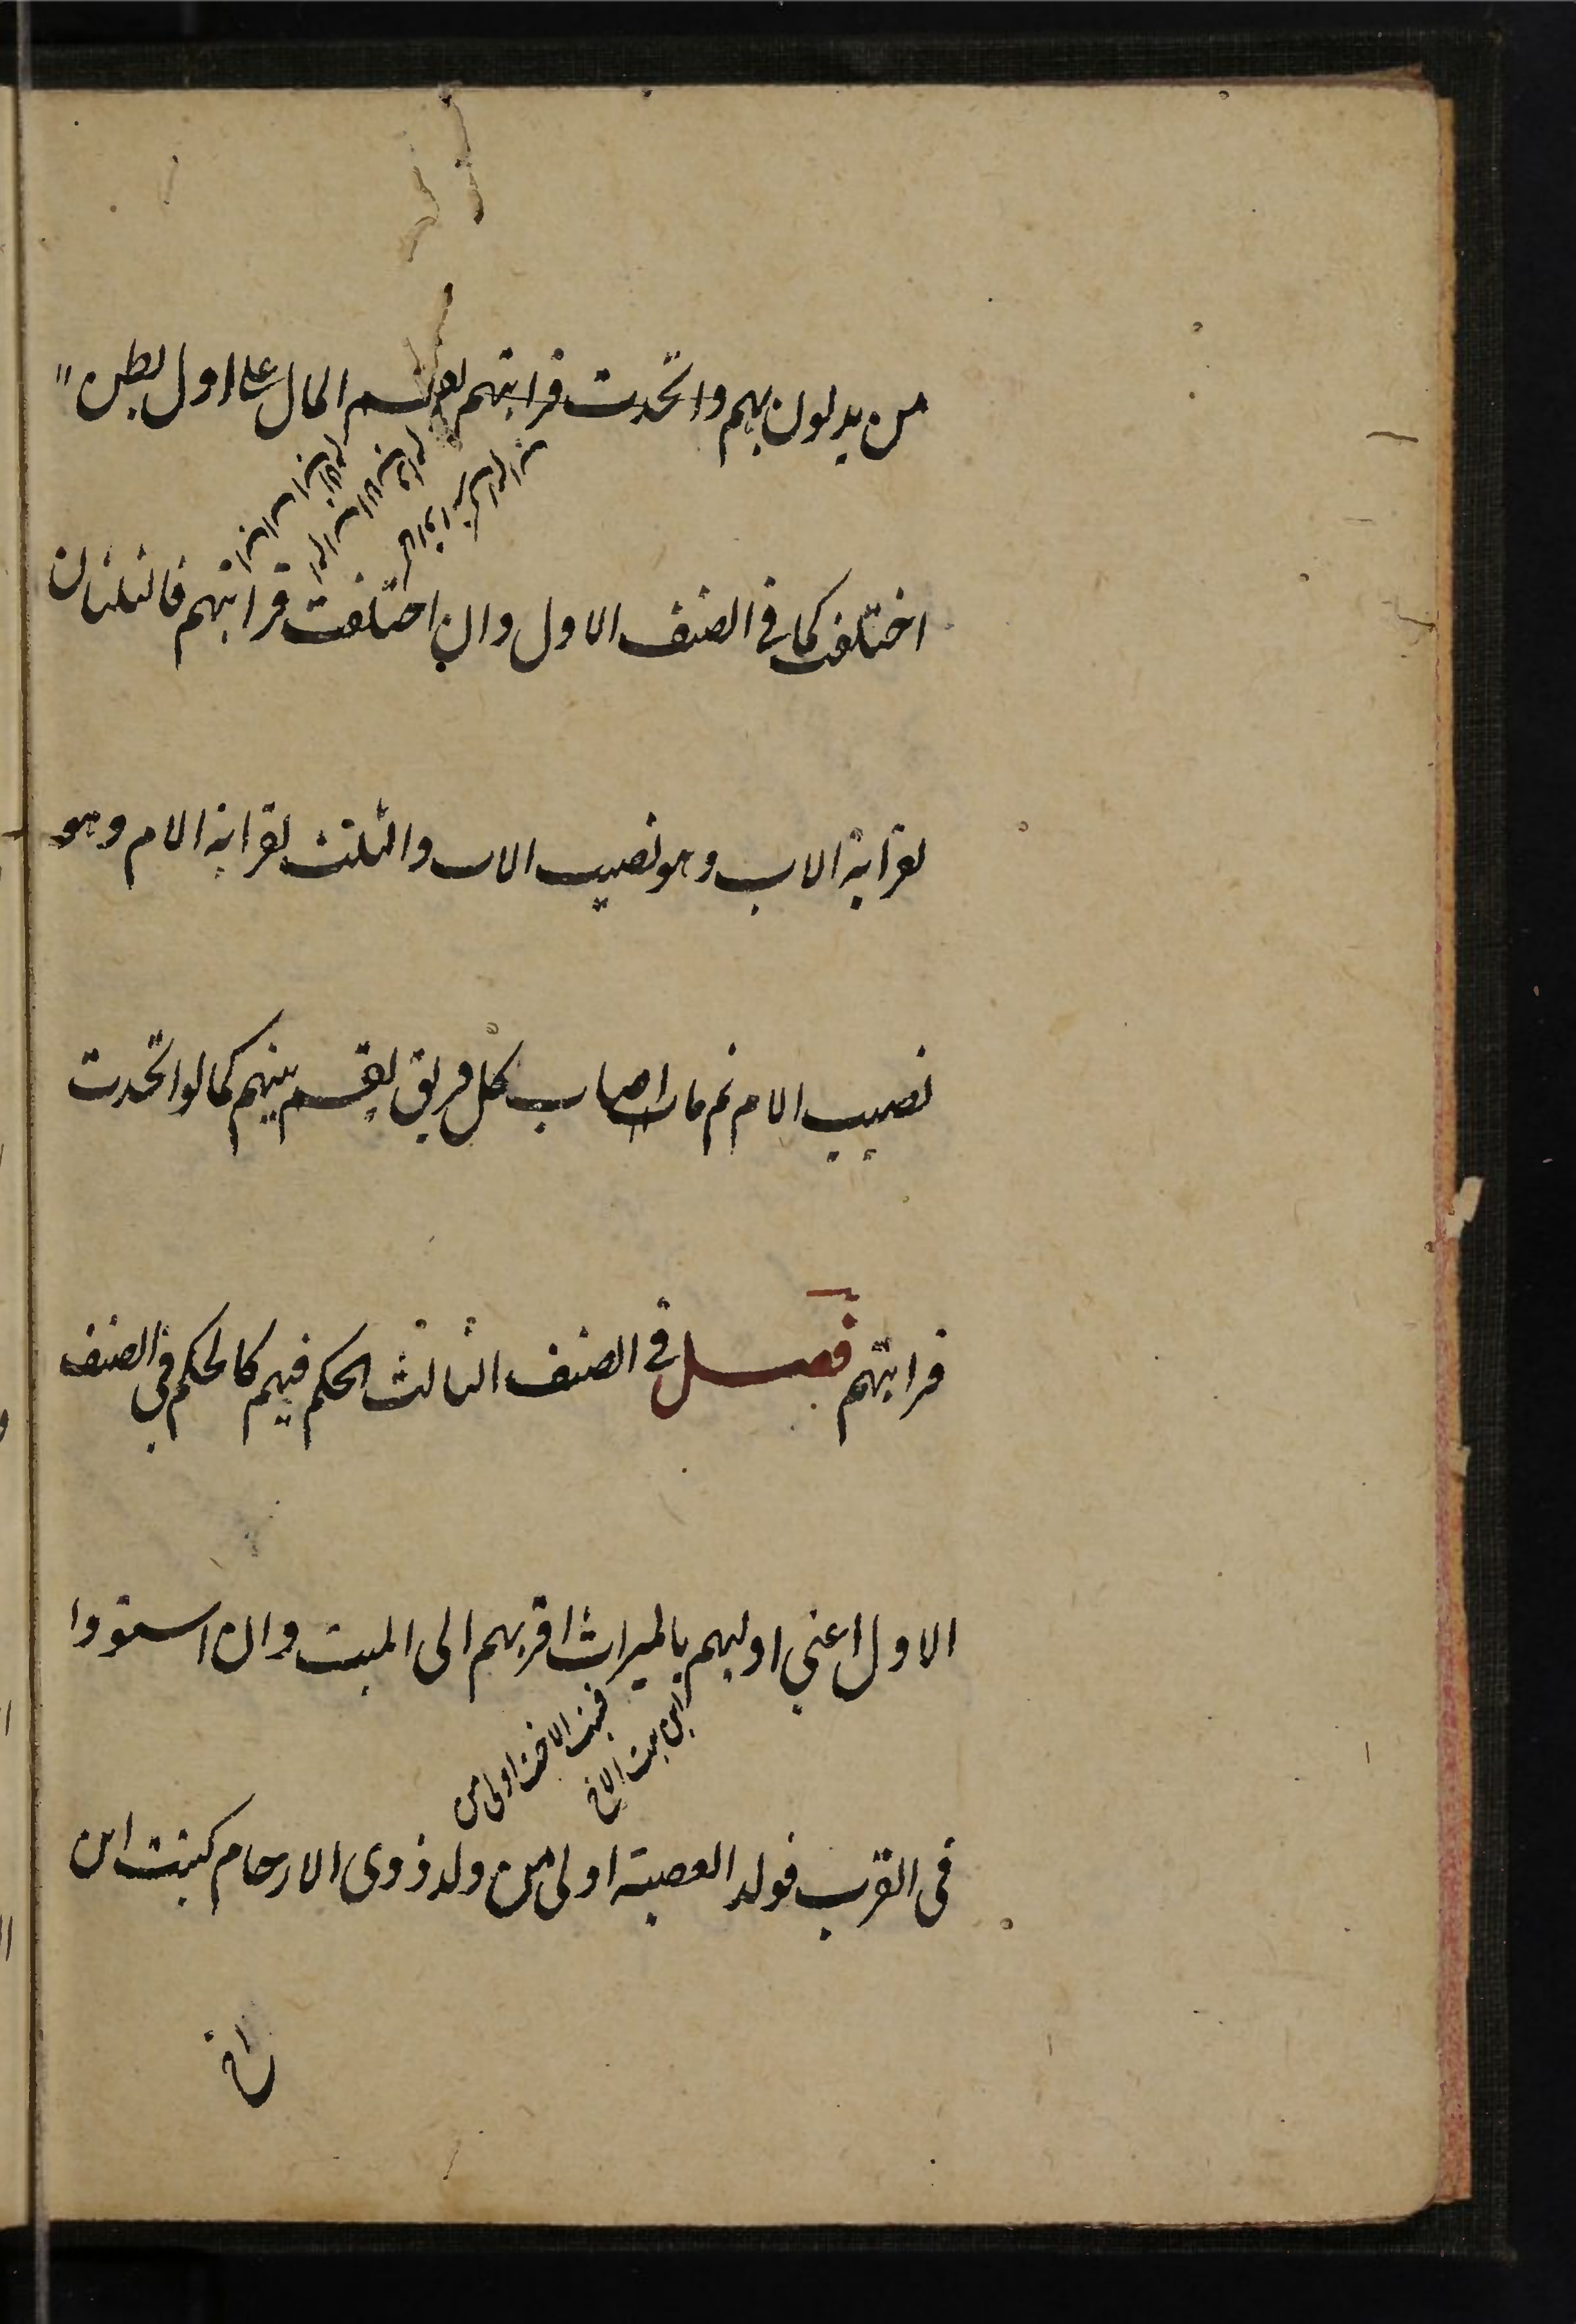 من يدلون بهم واتحدت قرابتهم يقسم المال على اول بطن
اختلف كما فى الصنف الاول وان اختلفت قرابتهم فالثلثان
لقرابة الاب وهو نصيب الاب والثلث لقرابة الام وهو
نصيب الام ثم ما اصاب كل فريق يقسم بينهم كما لو اتحدت
قرابتهم فصل فى الصنف الثالث الحكم فيهم كالحكم فى الصنف
الاول اعنى اوليهم بالميراث اقربهم الى الميت وان استووا
فبنت الاخت اولى من
ابن بنت الاخ
فى القرب فولد العصبة اولى من ولد ذوى الارحام كبنت ابن
اخ